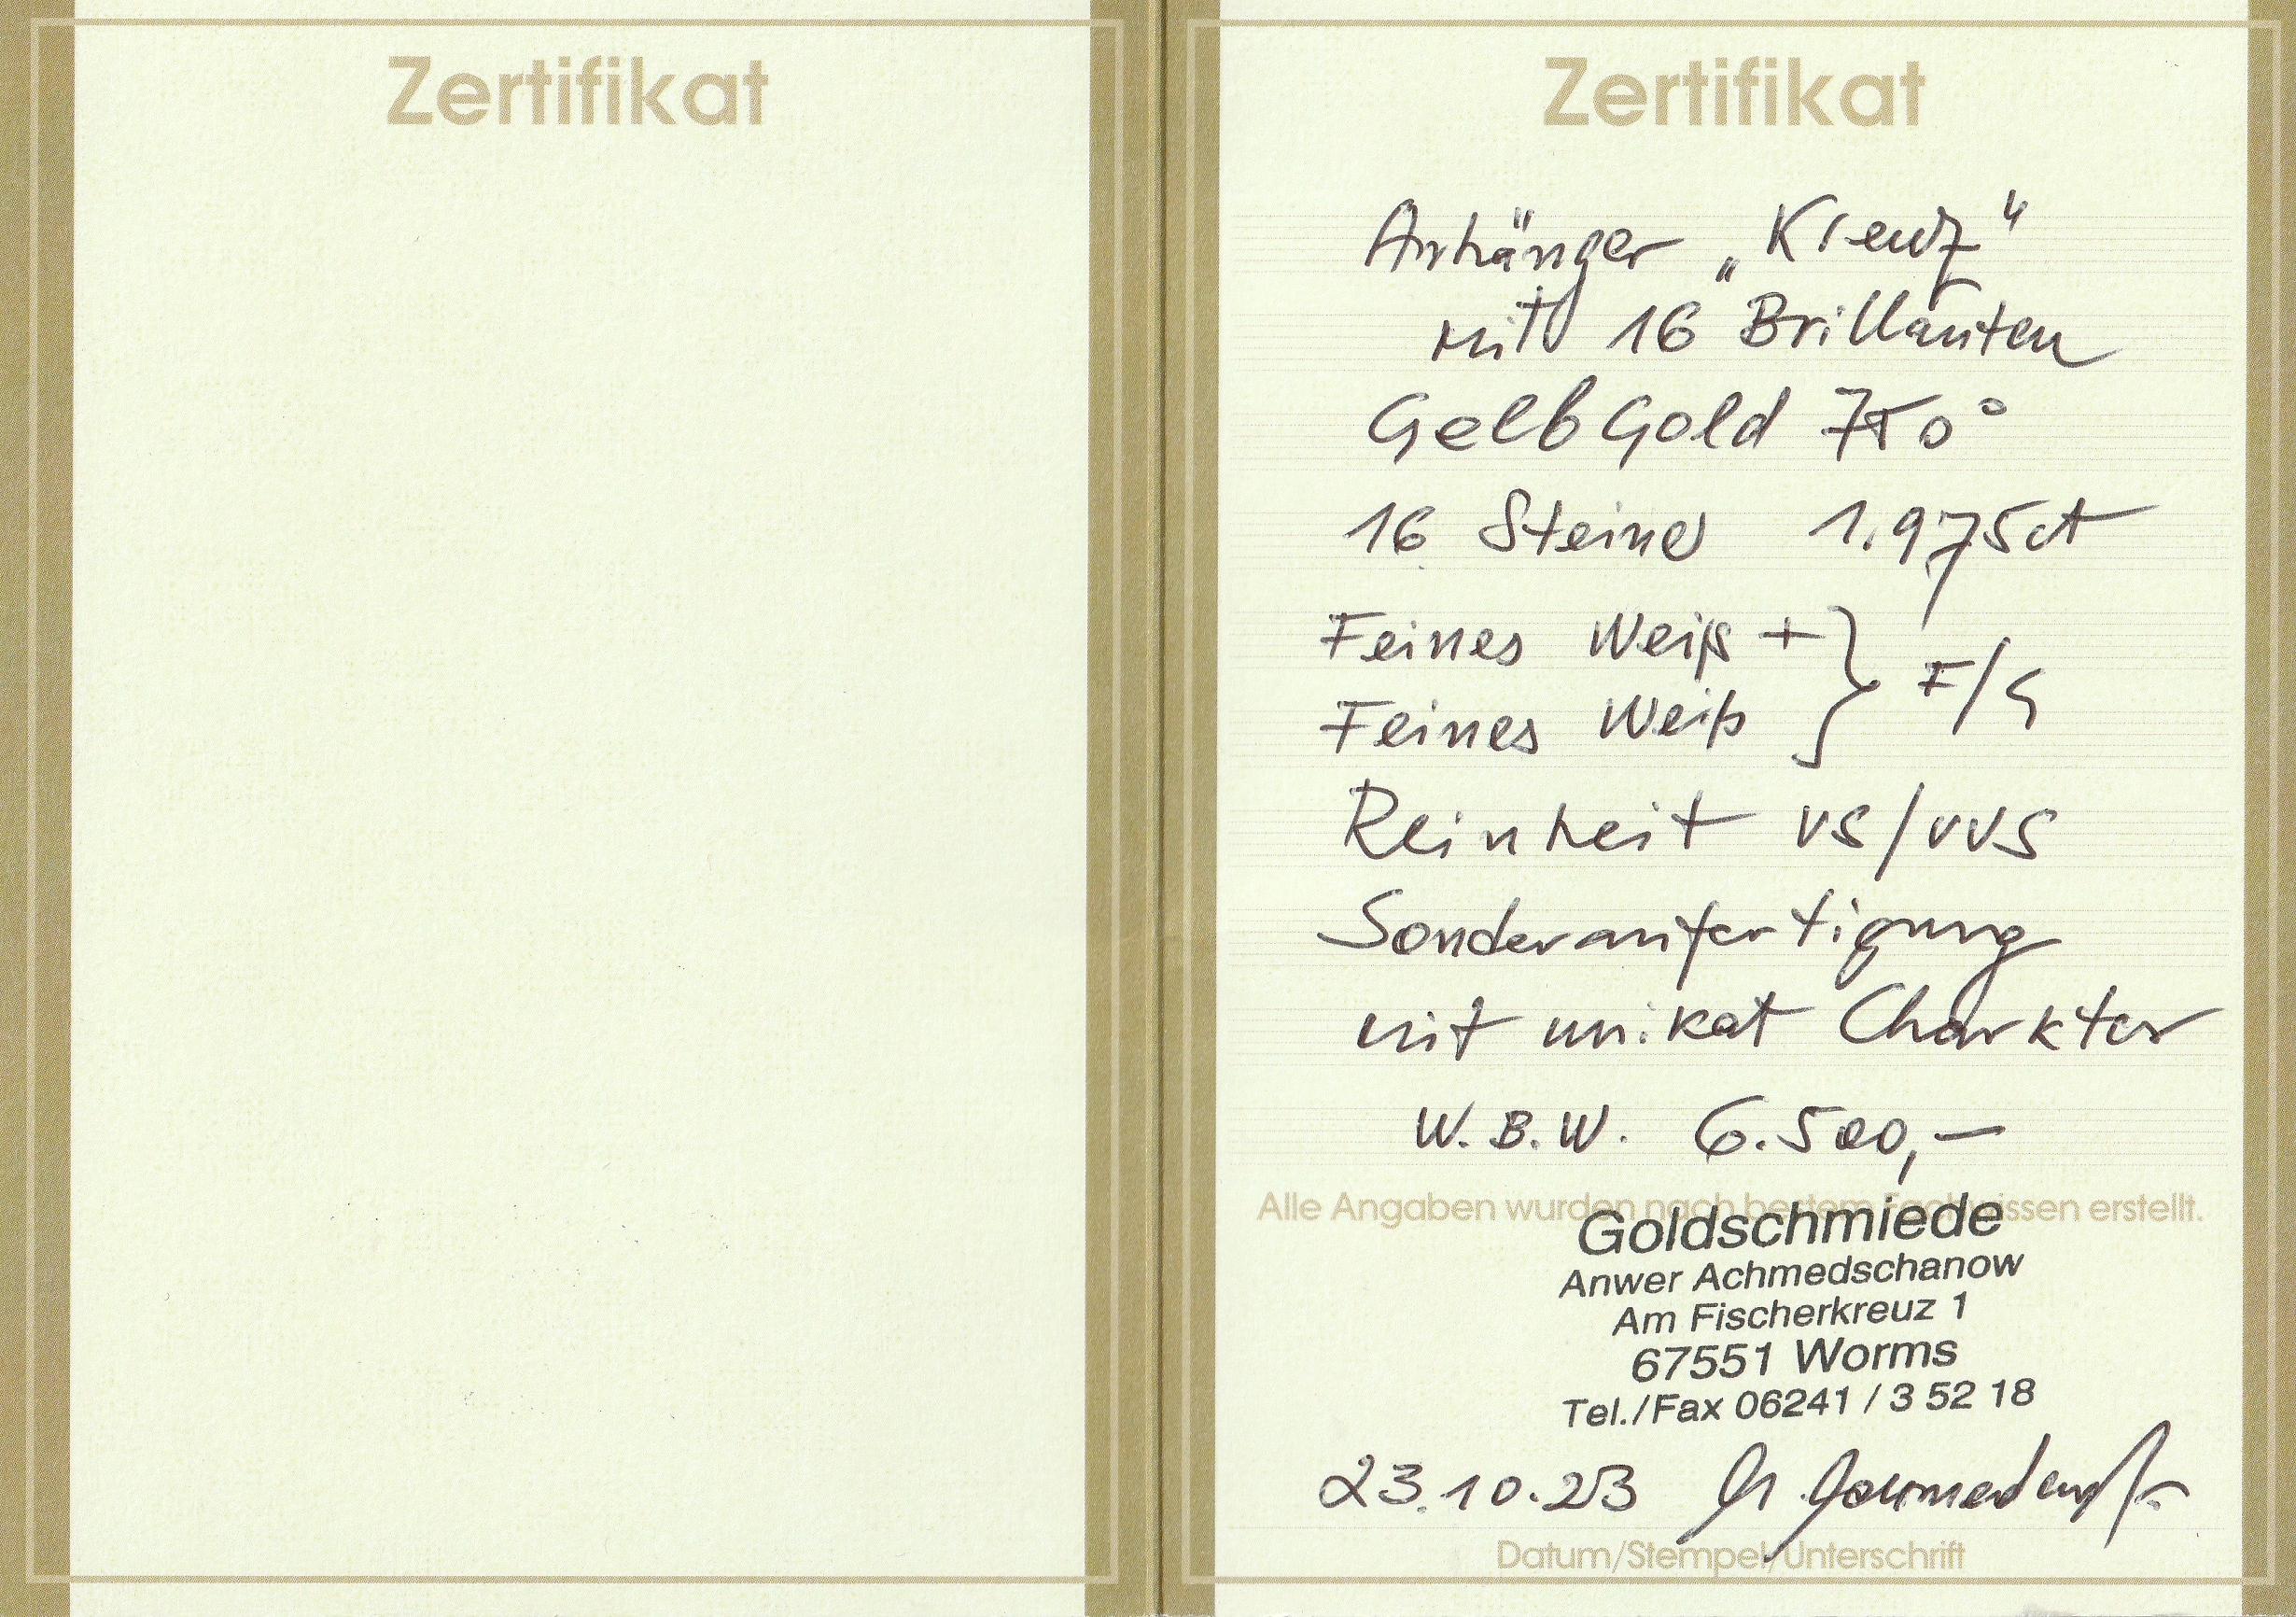 Zertifikat
Zertifikat
Anhänger „Kreuz"
mit 16 Brillanten
GelbGold 750°
16 Steine 1.975ct
Feines Weiß +
Feines Weiß } F/G
Reinheit VS/VVS
Sonderanfertigung
mit unikat Charkter
W.B.W. 6.500,—
Alle Angaben wurden nach bestem Fachwissen erstellt.
Goldschmiede
Anwer Achmedschanow
Am Fischerkreuz 1
67551 Worms
Tel./Fax 06241 / 3 52 18
23.10.23
Datum/Stempel/Unterschrift